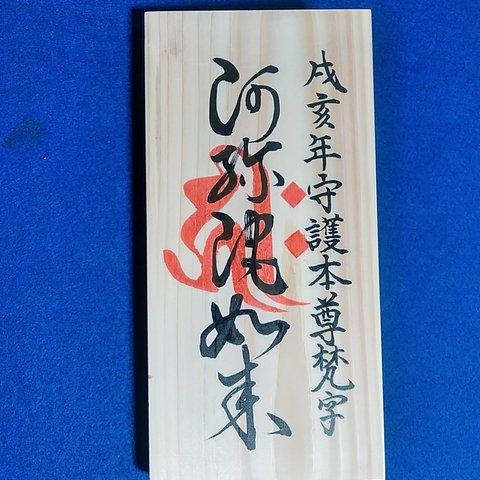 戌亥年守護本尊梵字
阿弥陀如来
𑖮𑖿𑖨𑖱𑖾